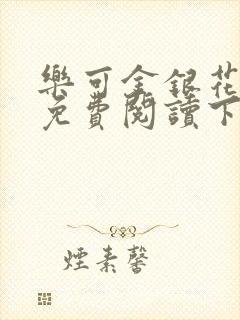 樂可金銀花
免費閱讀下
煙素馨